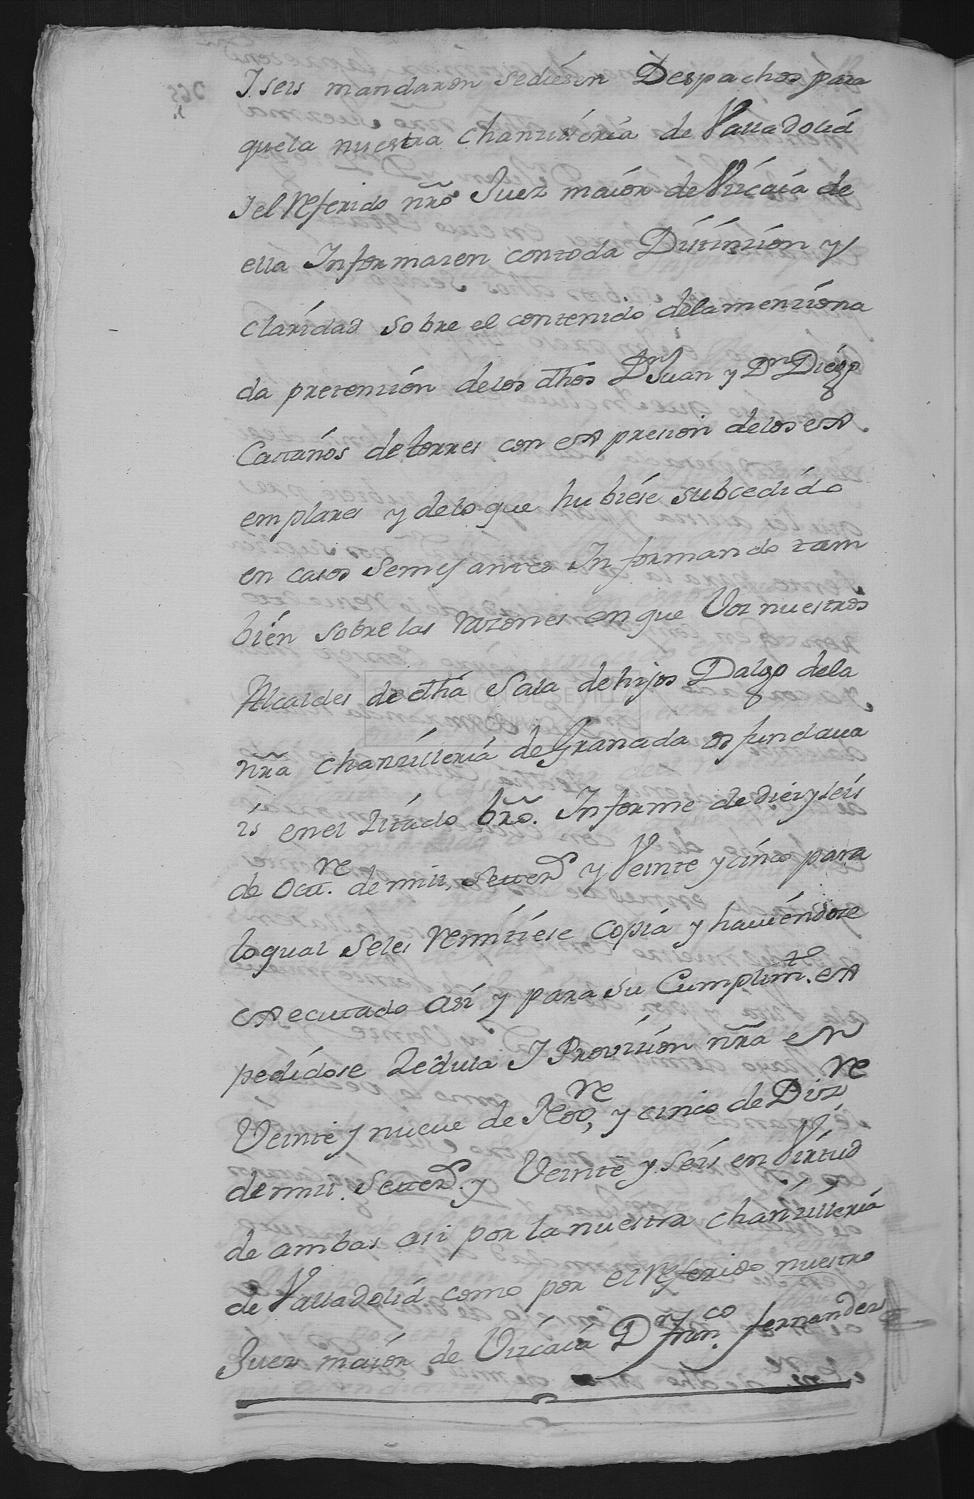 Y seis mandaron se diesen Despachos para
que la nuestra Chanzilleria de Valladolid
Y el referido nr̃o Juez maior de Vizcaia de
ella Informasen con toda Distinzion y
claridad sobre el contenido de la menziona
da pretension de los dhõs Dn Juan y Dn Diego
Cattaños de torres con expresion de los ex
emplares y de lo que hubiese subcedido
en casos Semejantes Informando tam
bien sobre las razones en que Vos nuestros
Alcaldes de dhã Sala de hijos Dalgo de la
nr̃a chanzilleria de Granada os fundava
is en el Zitado br̃o. Informe de diez y seis
de Octt.re de mill setteẓ.s y Veinte y cinco para
lo qual se les remitiese Copia y haviendose
executado asi y para su Cumplim.to ex
pedidose Zedula Y Provizion nr̃a en
Veinte y nueve de Nov.re y cinco de Diz.re
de mill. Setteẓ.s y Veinte y seis en Virtud
de ambas asi por la nuestra chanzilleria
de Valladolid como por el referido nuestro
Juez maior de Vizcaia Dn fran.co fernandez